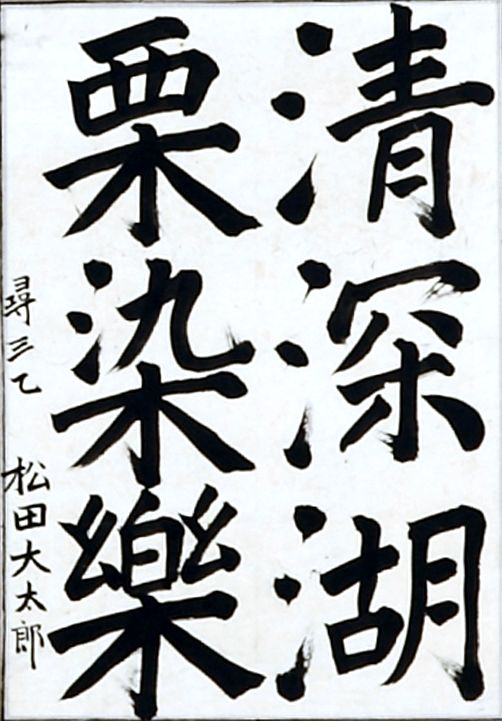 清深湖
栗染樂
尋三乙 松田大太郎